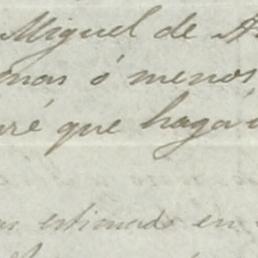 Miguel de A
mas ó menos
ré que haga
estimado en